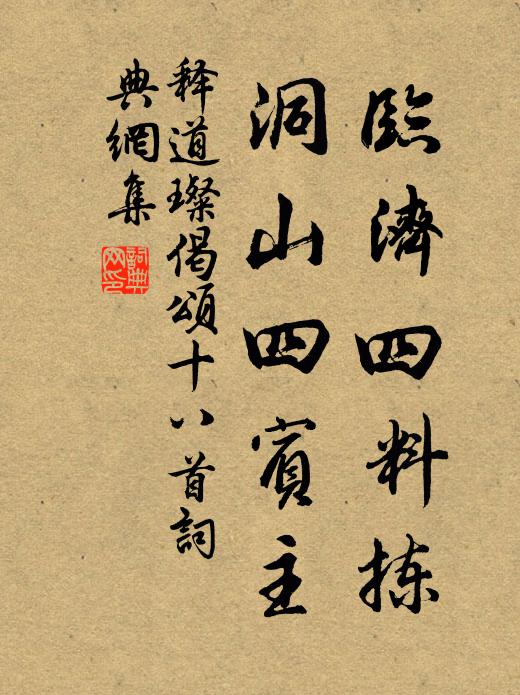 臨濟四料拣
洞山四賓主
释道璨偈頌十八首詞
典網集
詞典網印